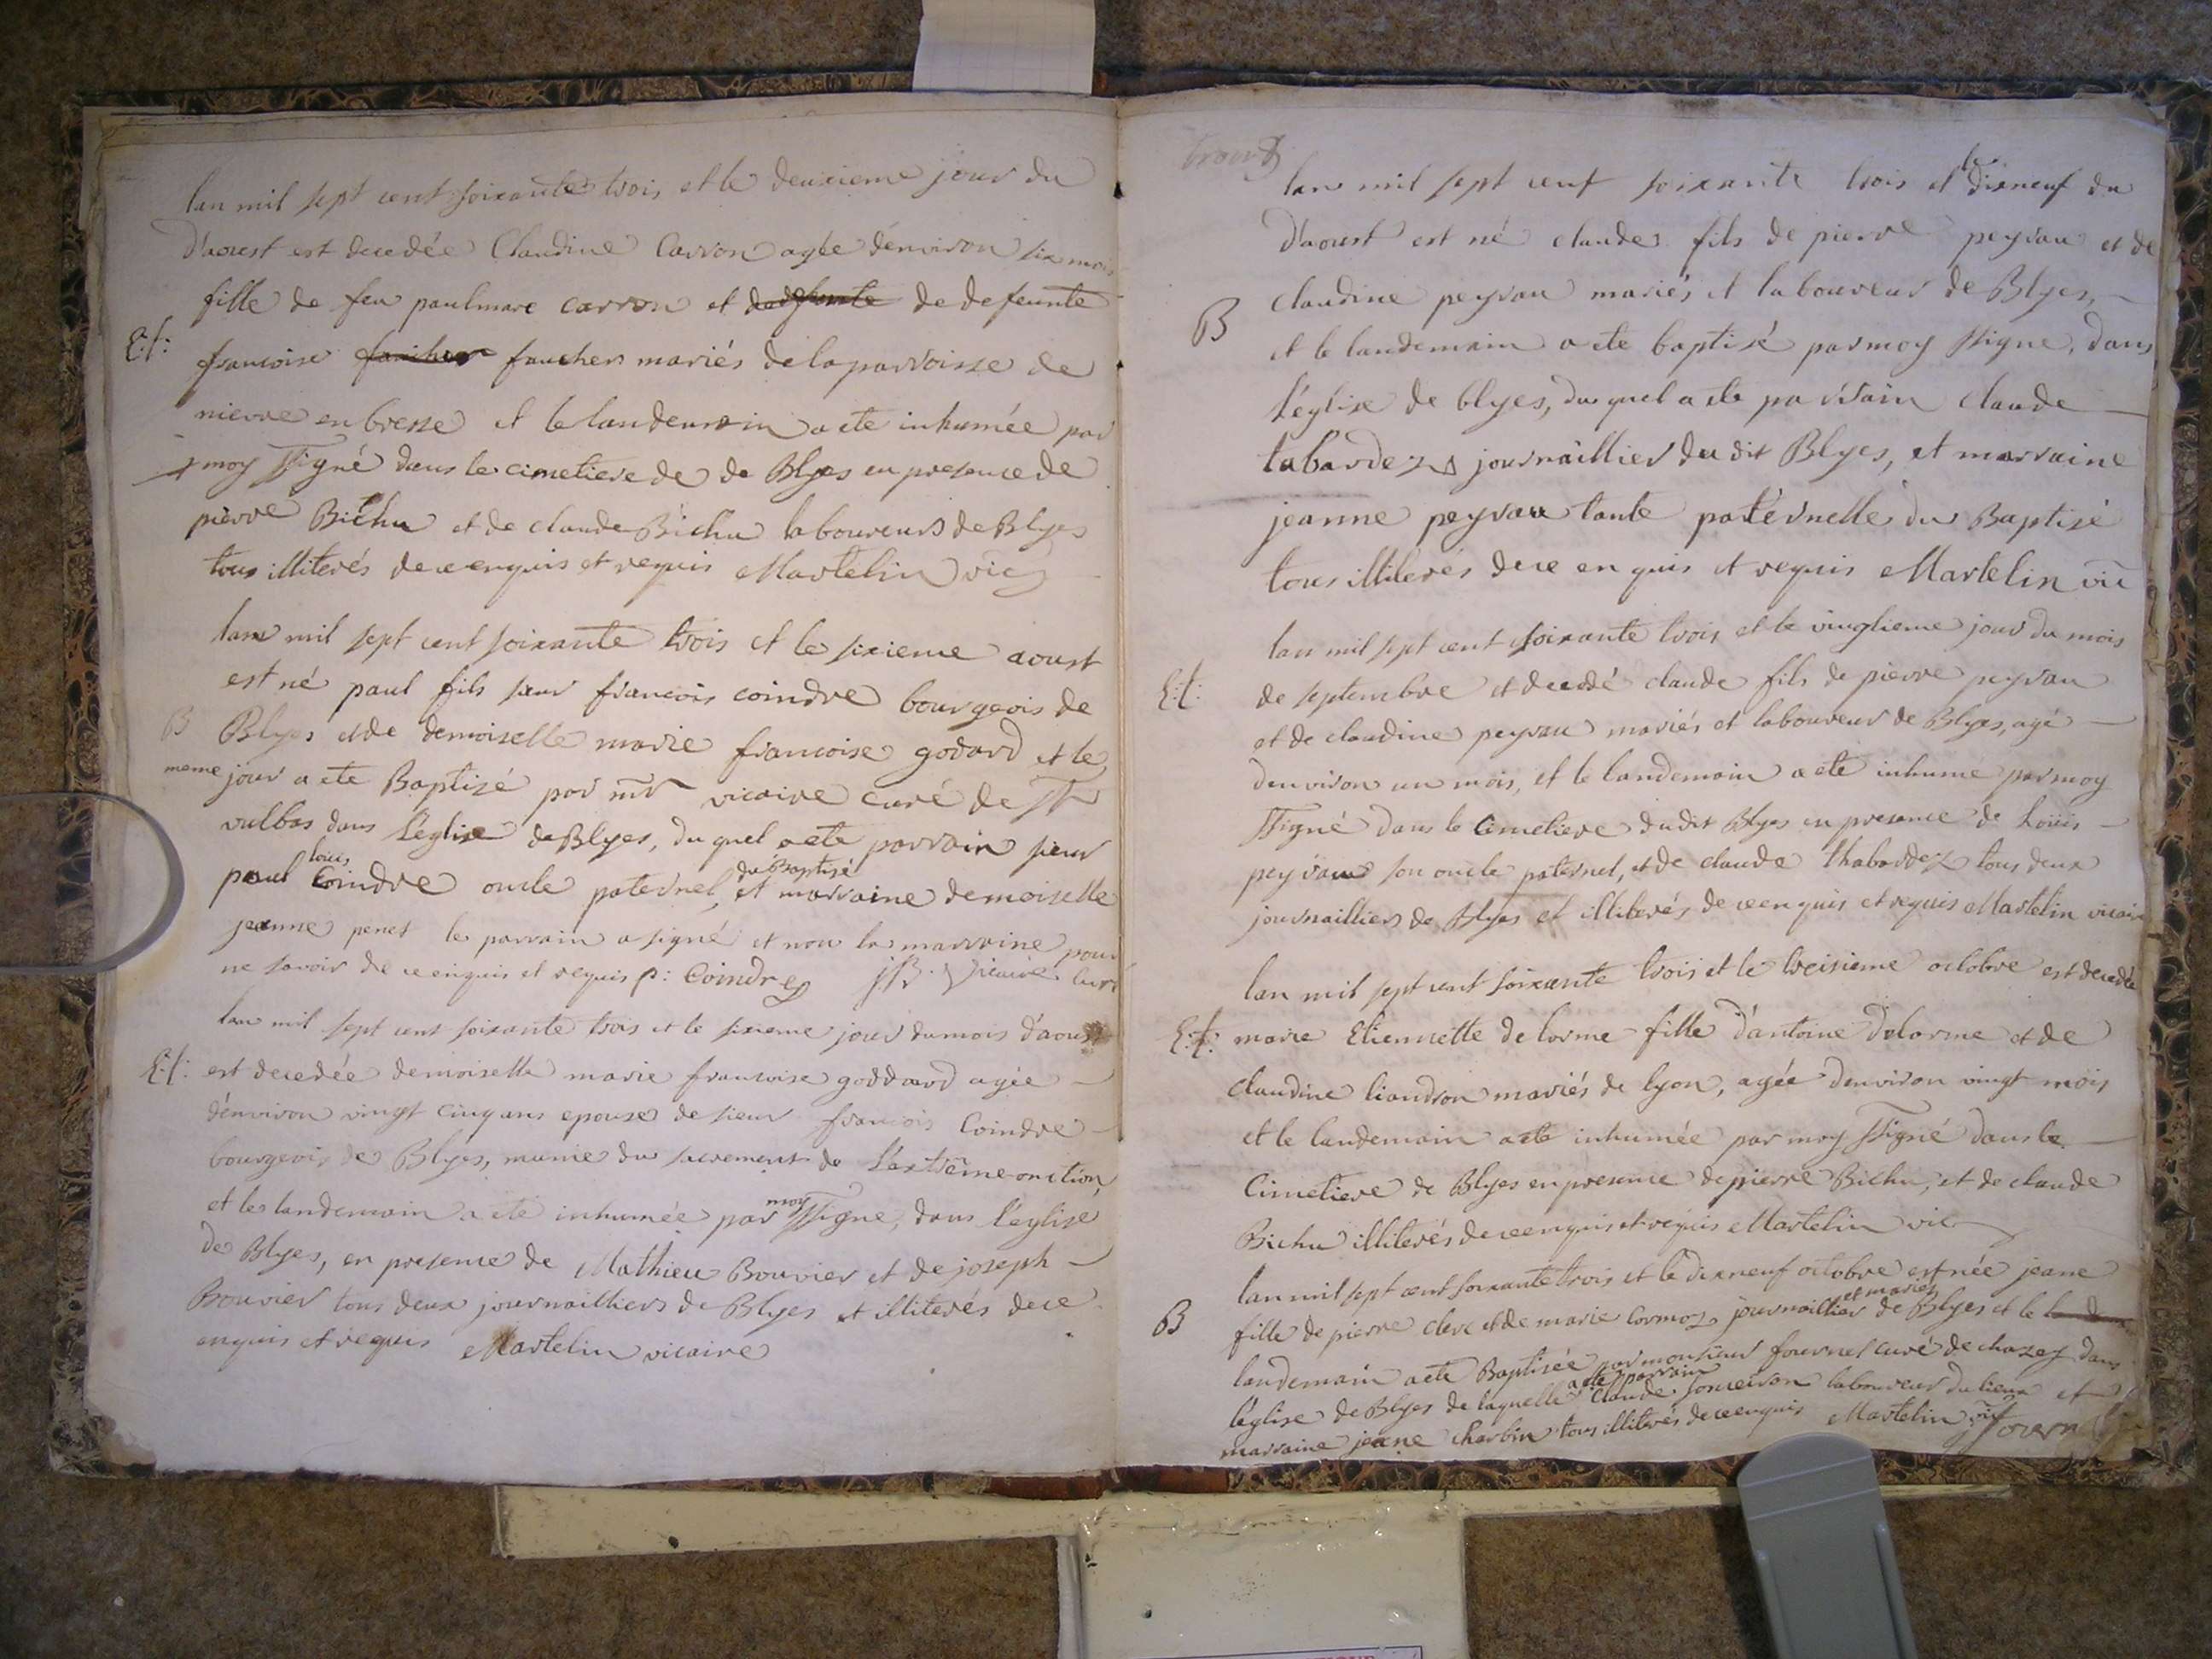 lan mil sept cent soixante trois, et le deuxieme jour du
d'aoust est decedée Claudine Carron agée d'environ six mois
fille de feu paulmarc carron et de defeunte
E:t: francoise fauchers mariés de la parroisse de
nievre en bresse et le landemain a ete inhumée par
moy ssigné dans le cimetiere de de Blyes en presence de
pierre Bichu et de claude Bichu laboureurs de Blyes
tous illiterés de ce enquis et requis Martelin vic
lan mil sept cent soixante trois et le sixieme aoust
est né paul fils sieur francois coindre bourgeois de
B Blyes et de demoiselle marie francoise godard et le
meme jour a ete Baptizé par mr vicaire curé de st
vulbas dans l'église de Blyes, du quel a ete parrain sieur
paul louis Coindre oncle paternel, du Baptisé et marraine demoiselle
jeanne penet le parrain a signé et non la marraine pour
ne savoir de ce enquis et requis p: Coindre JB. Vicaire curé
lan mil sept cent soixante trois et le sixieme jour du mois d'aoust
E:t: est decedée demoiselle marie francoise goddard agée
d'environ vingt cinq ans epouse de sieur francois Coindre
bourgeois de Blyes, munie du sacrement de l'extreme-onction,
et le landemain a ete inhumée par moy ssigne, dans l'eglise
de Blyes, en presence de Mathieu Bouvier et de joseph
Bouvier tous deux journailliers de Blyes et illiterés de ce
enquis et requis Martelin vicaire
lan mil sept cent soixante trois et le dixneuf du
d'aoust est né claude fils de pierre peyrau et de
B claudine peyrau mariés et laboureur de Blyes,
et le landemain a ete baptisé par moy ssigne, dans
l'église de blyes, du quel a ete parrain claude
tabardez journaillier du dit Blyes, et marraine
jeanne peyrau tante paternelle du Baptisé
tous illiterés de ce en quis et requis Martelin vic
lan mil sept cent soixante trois et le vingtieme jour du mois
E:t: de septembre et decedé claude fils de pierre peyrau
et de claudine peyrau mariés et laboureur de Blyes, agé
denviron un mois, et le landemain a ete inhumé par moy
ssigné dans le Cimetiere dudit Blyes en presence de Louis
peyrau son oncle paternel, et de claude thabardez tous deux
journailliers de Blyes et illiterés de ce enquis et requis Martelin vicaire
lan mil sept cent soixante trois et le treisieme octobre est decedée
E:t: marie Etiennette delorme fille d'antoine delorme et de
claudine liandron mariés de lyon, agée denviron vingt mois
et le landemain a ete inhumée par moy ssigné dans le
Cimetiere de Blyes en presence de pierre Bichu, et de claude
Bichu illiterés de ce enquis et requis Martelin vic
lan mil sept cent soixante trois et le dixneuf octobre est née jeane
B fille de pierre clerc et de marie Cormoz journaillier et mariés de Blyes et le
landemain a ete Baptisée par monsieur fournel curé de chazey dans
l'église de Blyes de laquelle a ete parrain Claude laboureur du lieux et
marraine jeane charbin tous illiterés de ce enquis Martelin vic